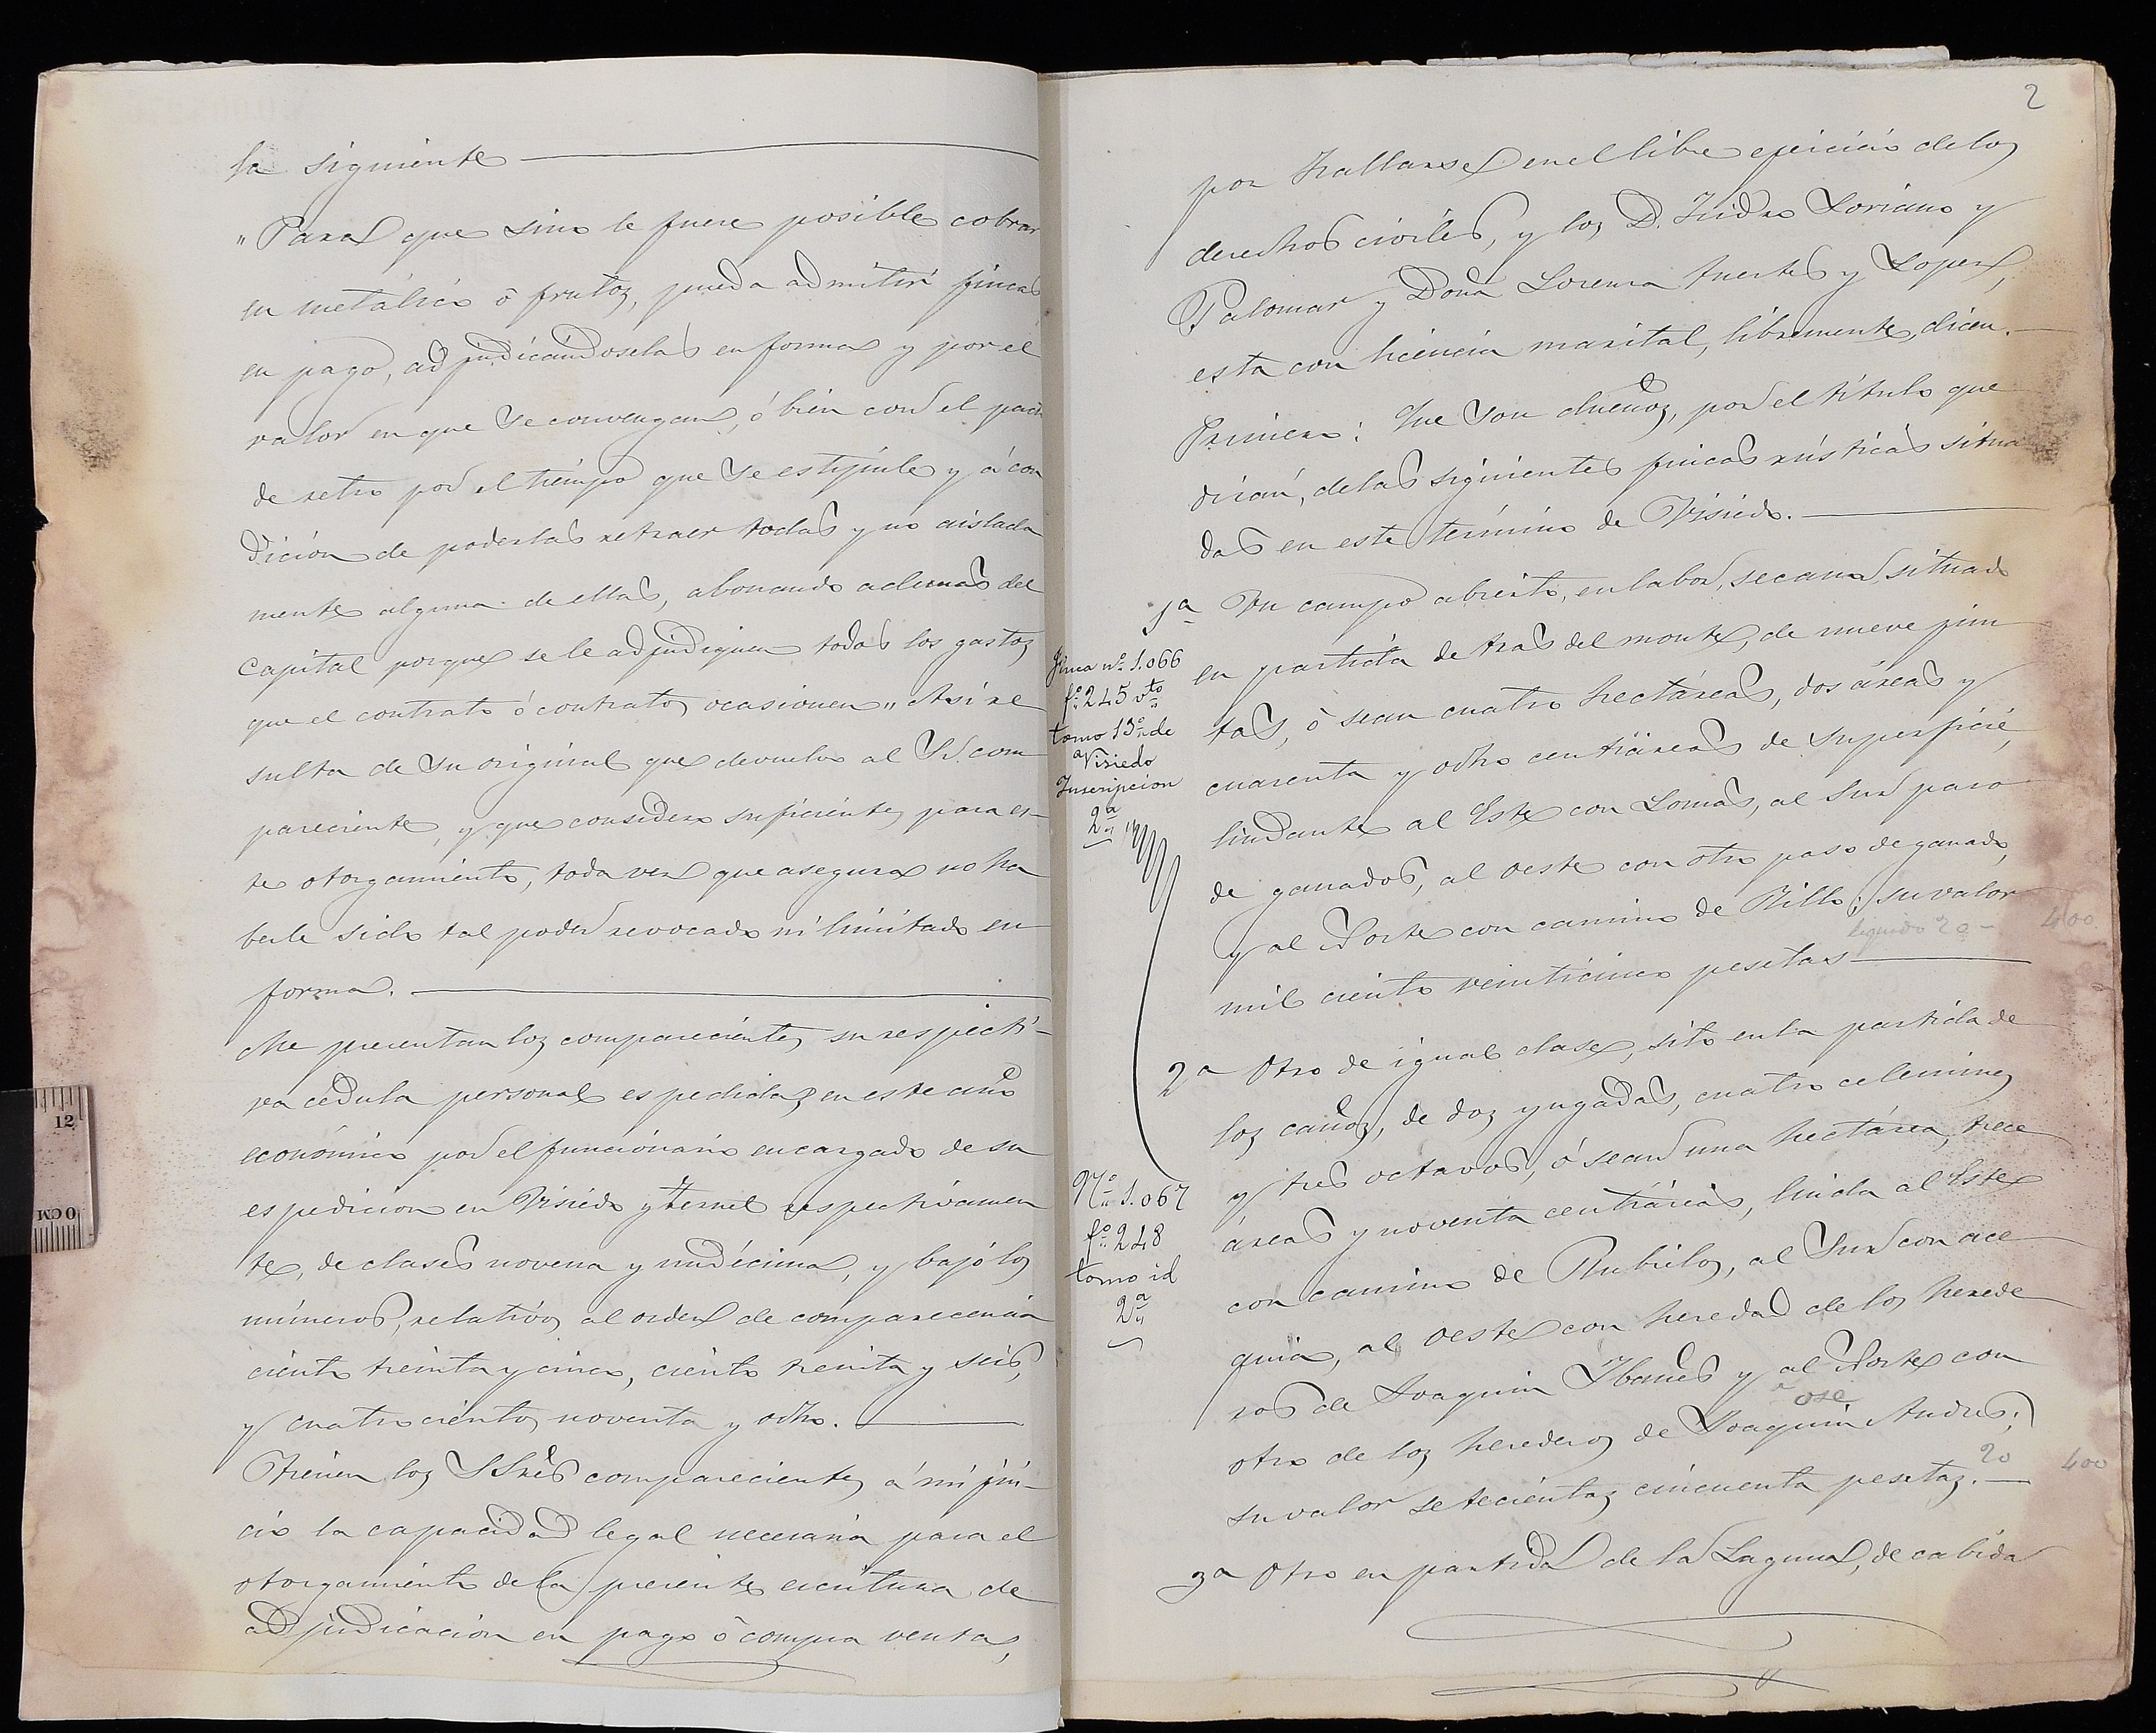 la siguiente
"Para que sino le fuere posible cobrar
en metálico ó frutos, pueda admitir fincas
en pago, adjudicándoselas en forma y por el
valor en que se convengan, ó bien con el pacto
de retro por el tiempo que se estipule y á con
dición de poderlas retraer todas y no aislada
mente alguna de ellas, abonando ademas del
capital porque se le adjudiquen todos los gastos
que el contrato ó contratos ocasionen" Así re
sulta de su original que devuelvo al Sr. com
pareciente, y que considero suficiente, para es-
te otorgamiento, toda vez que asegura no ha
berle sido tal poder revocado ni limitado en
forma.
Me presentan los comparecientes su respecti-
va cédula personal espedidas en este año
económico por el funcionario encargado de su
espedicion en Visiedo y Teruel respectivamen
te, de clases novena y undécima, y bajo los
números, relativos al orden de comparecencia
ciento treinta y cinco, ciento treinta y seis,
y cuatrocientos noventa y ocho.
Tienen los SSres comparecientes á mi jui-
cio la capacidad legal necesaria para el
otorgamiento de la presente escritura de
adjudicación en pago ó compra venta,
2
por hallarse en el libre ejercicio de los
derechos civiles, y los D. Isidro Soriano y
Palomar y Doña Lorenza Fuertes y Lopez,
esta con licencia marital, libremente, dicen.
Primero: Que son dueños, por el título que
dirán, de las siguientes fincas rústicas situa
das en este término de Visiedo.
1ª Un campo abierto, en labor, secano, situado
en partida de tras del monte, de nueve jun
tas, ó sean cuatro hectáreas, dos áreas y
cuarenta y ocho centiáreas de superficie,
lindante al Este con Lomas, al Sur paso
de ganados, al oeste con otro paso de ganado,
y al Norte con camino de Rillo; su valor
liquido 20 - 400
mil ciento veinticinco pesetas
Finca nº 1.066
fº 245 vto
tomo 13º de
Visiedo
Inscripcion
2ª
2ª Otro de igual clase, sito en la partida de
los caños, de dos yugadas, cuatro celemines
y tres octavos, ó sean una hectárea, trece
áreas y noventa centiáreas, linda al Este
con camino de Rubielos, al Sur con ace
quia, al oeste con heredad de los herede
ros de Joaquin Ybañes y al Norte con
ose
otro de los herederos de Joaquin Andres;
20 400
su valor setecientas cincuenta pesetas.
Nº 1.067
fº 248
tomo id
2ª
3ª Otro en partida de la Laguna, de cabida